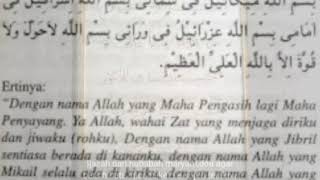 بِسْمِ اللهِ مِيْكَائِيْلُ فِى شِمَالِى بِسْمِ اللهِ اِسْرَافِيْلُ فِى
اَمَامِى بِسْمِ اللهِ عِزْرَائِيْلُ فِى وَرَائِى بِسْمِ اللهِ لاَحَوْلَ وَلاَ
قُوَّةَ اِلاَّ بِاللهِ الْعَلِىِّ الْعَظِيْمِ.
Ertinya:
"Dengan nama Allah yang Maha Pengasih lagi Maha
Penyayang. Ya Allah, wahai Zat yang menjaga diriku
dan jiwaku (rohku), Dengan nama Allah yang Jibril
sentiasa berada di kananku, dengan nama Allah yang
Mikail selalu ada di kiriku, dengan nama Allah yang
ijazah dari hubabah